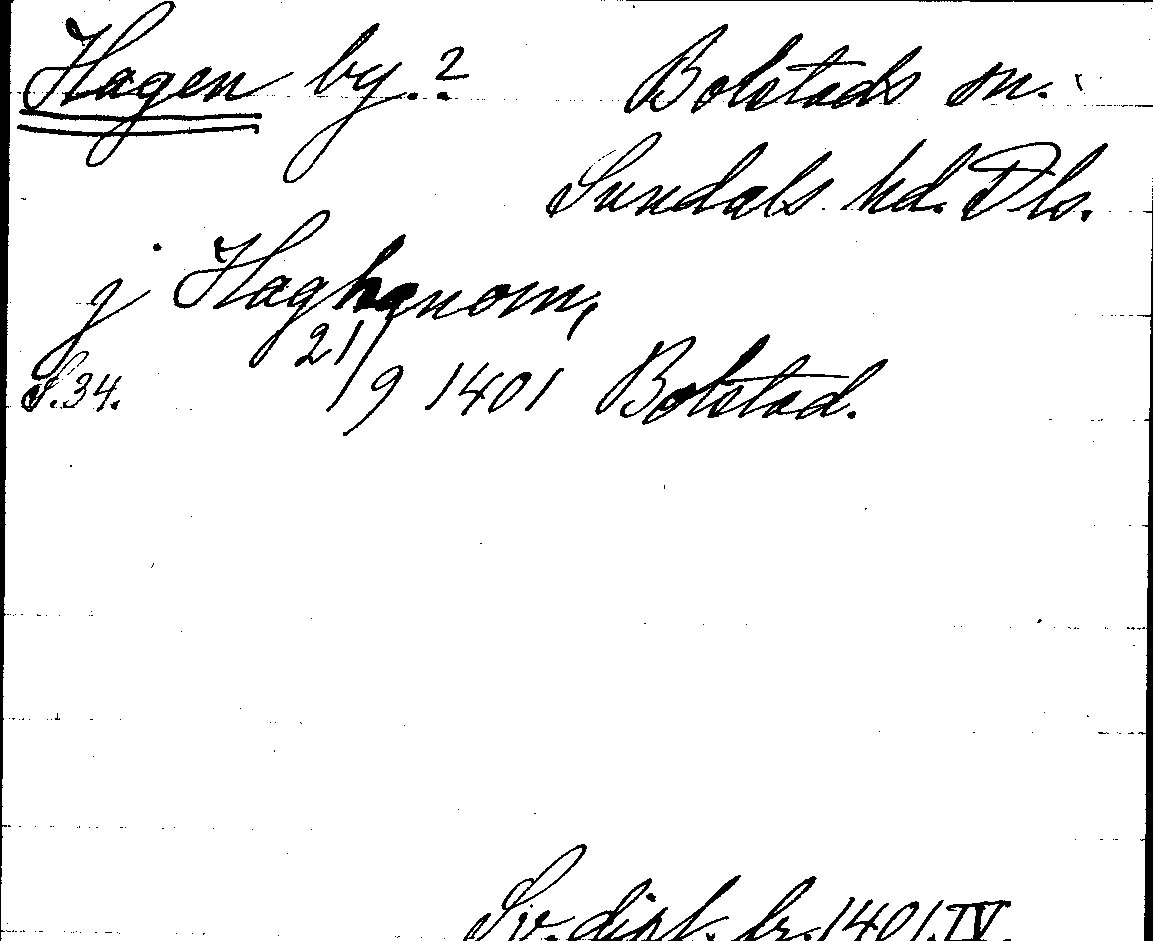 Hagen by.? Bolstads sn.
Sundals hd. Dls.
j Haghanom,
S.34. 21/9 1401 Bolstad.
Sv. dipl. fr. 1401. IV.